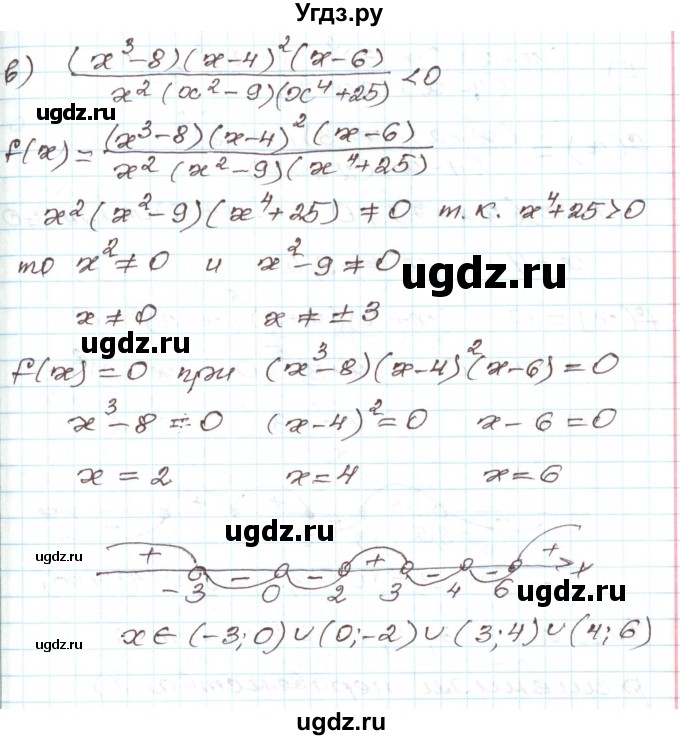 Угдз.ру
в) (x³-8)(x-4)²(x-6) / x²(x²-9)(x⁴+25) < 0
ugdz.ru
ugdz.ru
f(x) = (x³-8)(x-4)²(x-6) / x²(x²-9)(x⁴+25)
x²(x²-9)(x⁴+25) ≠ 0 т.к. x⁴+25>0
то x² ≠ 0 и x²-9 ≠ 0
ugdz.ru
x ≠ 0 x ≠ ±3
ugdz.ru
f(x) = 0 при (x³-8)(x-4)²(x-6) = 0
x³-8 = 0 (x-4)² = 0 x-6 = 0
x = 2 x = 4 x = 6
ugdz.ru
+ - - + - - + x
ugdz.ru
-3 0 2 3 4 6
ugdz.ru
x ∈ (-3; 0) ∪ (0; -2) ∪ (3; 4) ∪ (4; 6)
ugdz.ru
ugdz.ru
ugdz.ru